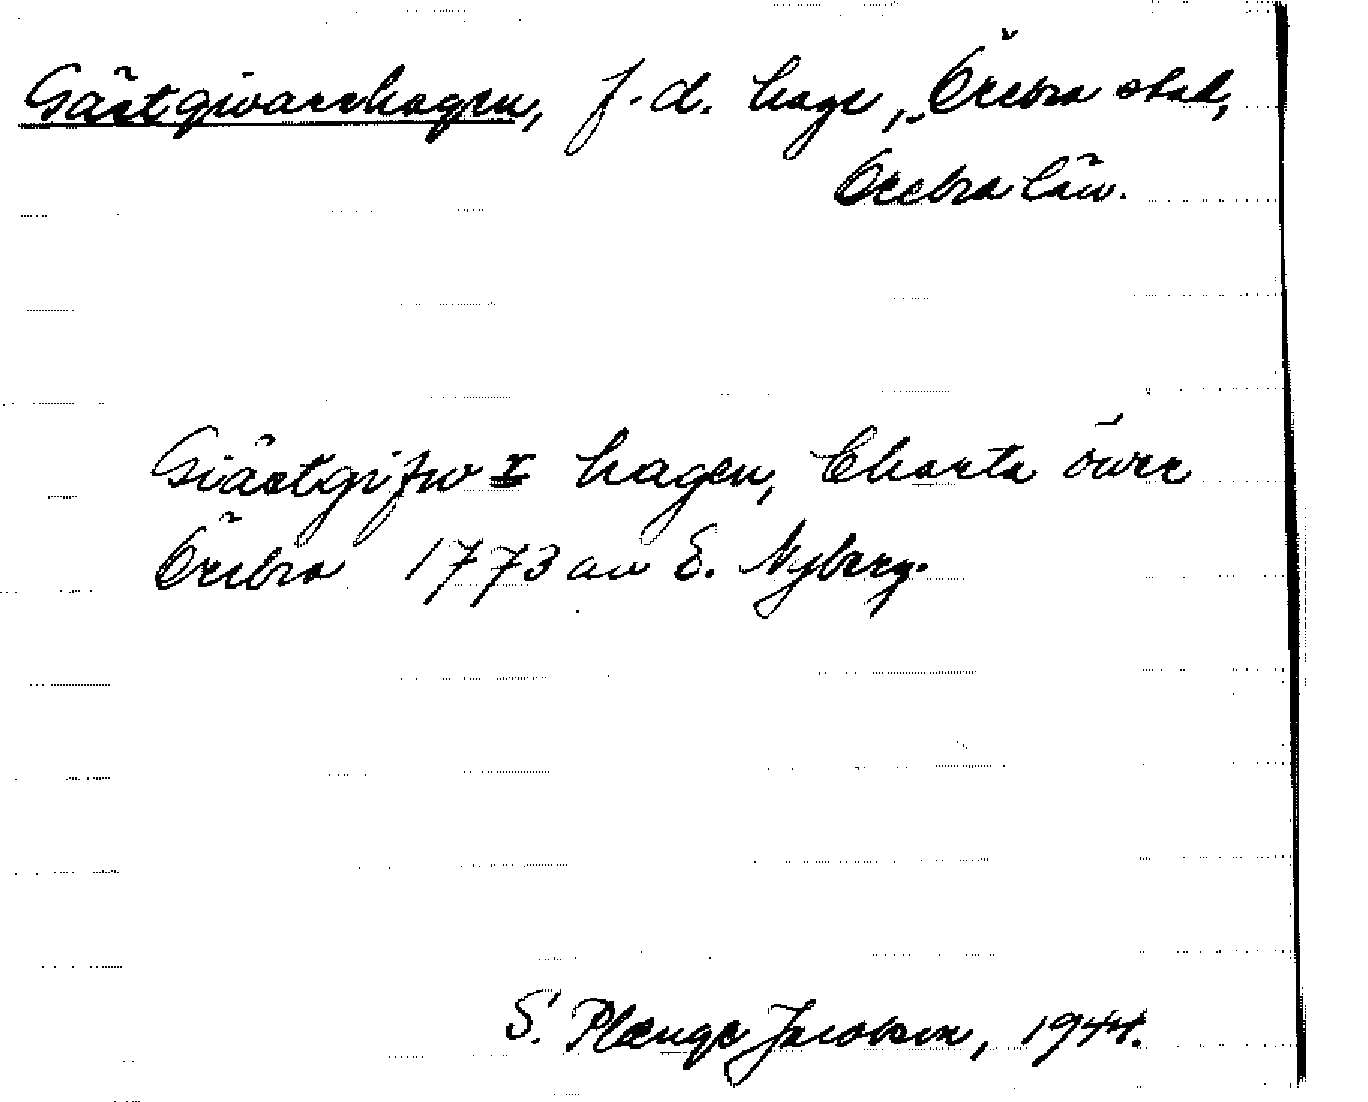 Gästgivarehagen, f.d. hage, Örebro stad,
Örebro län.
Giästgifw hagen, Charta öwer
Örebro 1773 aw E. Nyberg.
S. Plænge Jacobson, 1944.